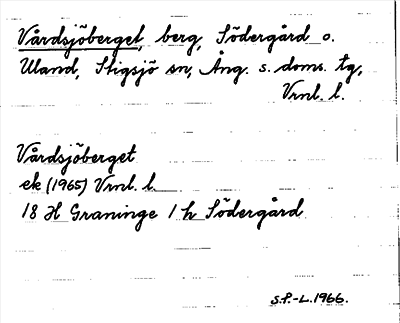 Vårdsjöberget, berg, Södergård o.
Uland, Stigsjö sn, Ång. s. doms. tg,
Vrnl. l.
Vårdsjöberget
ek (1965) Vrnl. l.
18 H Graninge 1 h Södergård
S.P.-L. 1966.